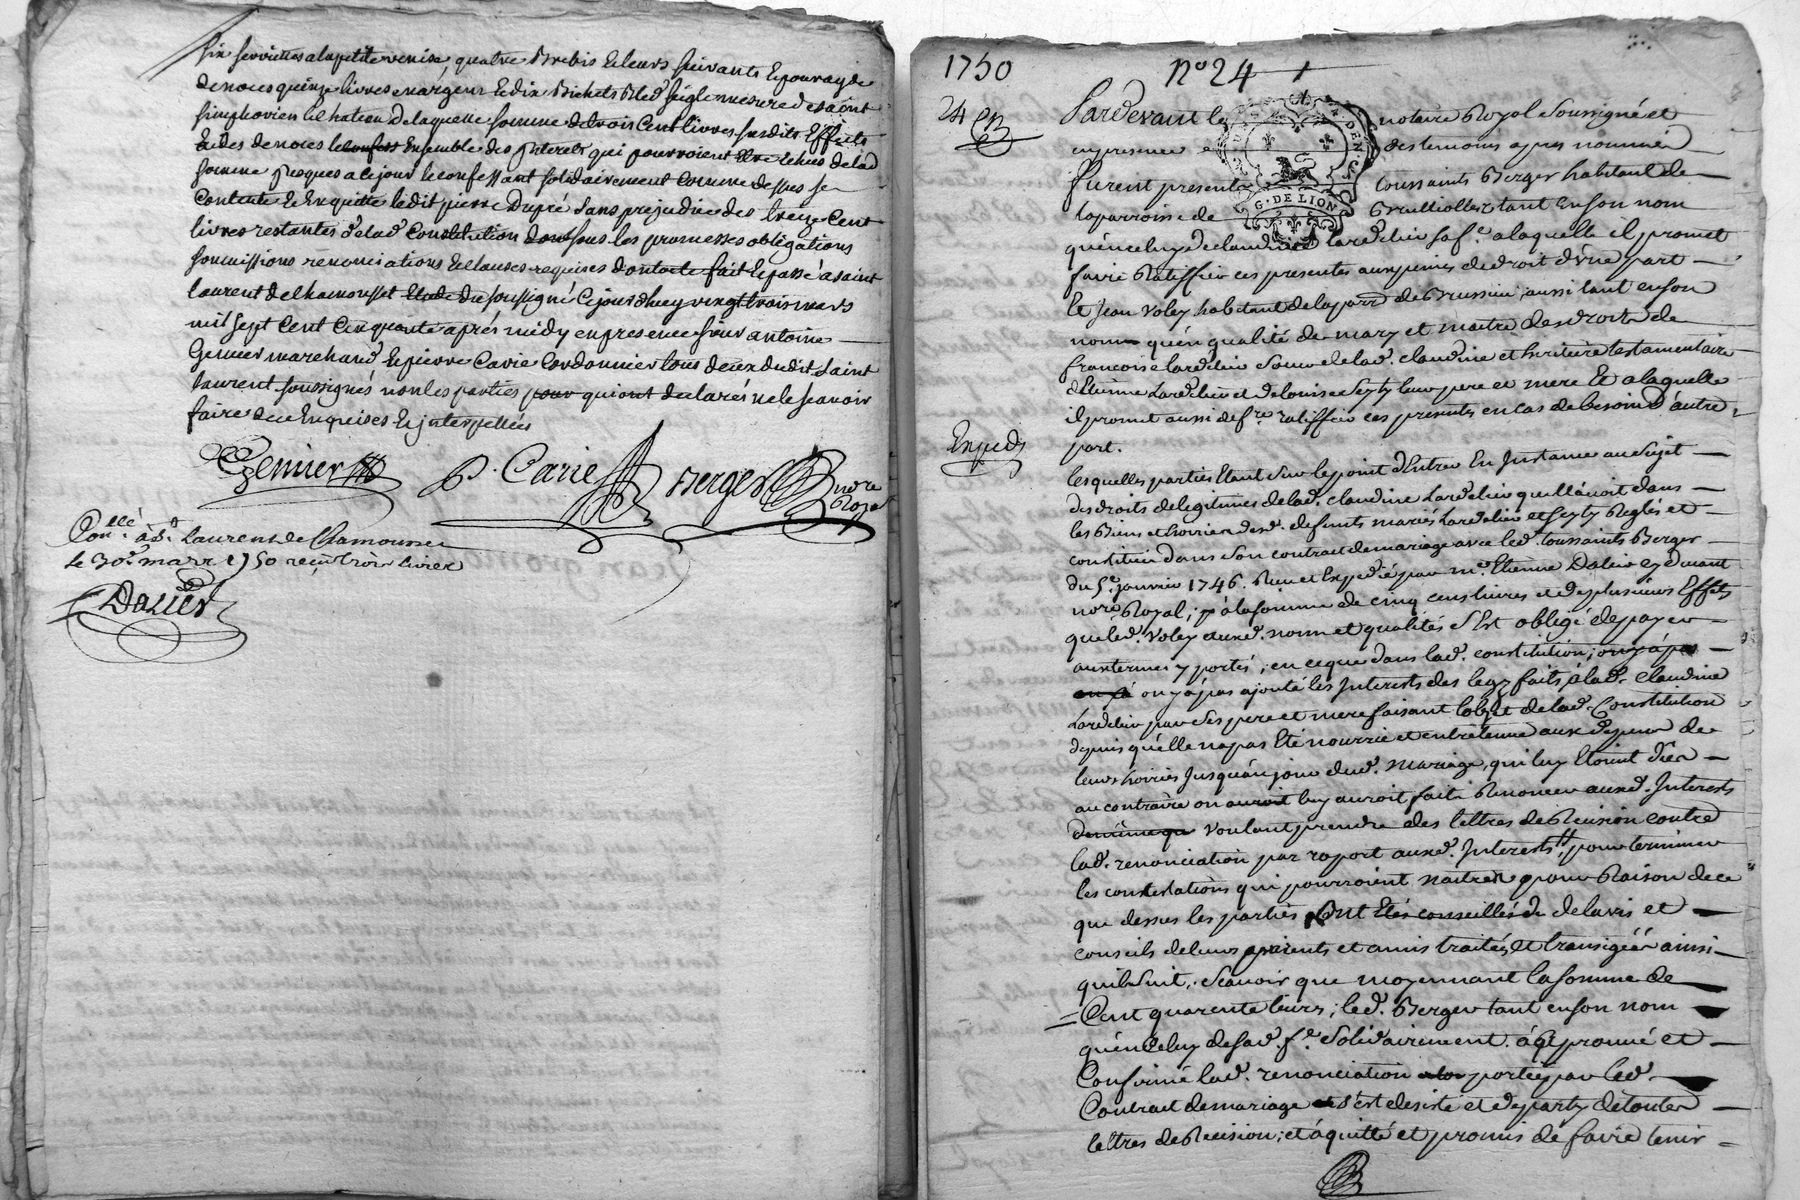 six serviettes a la petite venise, quatre Brebis et leurs suivants Equouvage
de noces quinze livres en argent Et dix Bichets Bled seigle mesure de saint
simphorien le chateau De laquelle somme de trois Cent livres susdits Effects
habits de noces Ensemble des Interets qui pourroient être échus de lad
somme jusques a ce jour le confessant solidairement comme dessus se
Contente Et En quitte ledit pierre Dupré sans prejudice des treize Cent
livres restantes de lad Constitution sous les promesses obligations
soumissions renonciations Et clauses requises dont acte fait Et passé a saint
laurent de chamousset Etude du soussigné Ce jourdhuy vingt trois mars
mil sept Cent Cinquante après midy en presence sieur antoine
Genier marchand Et pierre Carie Cordonnier tous deux dudit saint
laurent soussignés non les parties pour qui ont declarés ne le scavoir
faire de ce Enquises Et interpellées
Genier P. Carie Berger nore Royal
Conllé à St Laurent de Chamousset
le 30e mars 1750 reçu trois livres
Dalier
1750 N° 24
24
Pardevant le notaire Royal soussigné et
en presence des temoins apres nommés
furent presents toussaints Berger habitant de
la parroisse de Brullioller tant En son nom
qu'en celuy de claudine Lardelier sa fe. a laquelle il promet
faire Ratiffier ces presentes aux peines de droit d'une part
Et Jean Voley habitant de la parr. de Brussieu aussi tant en son
nom qu'en qualité de mary et maitre des droits de
francoise Lardelier soeur de lad. claudine et heritiere testamentaire
d'Etienne Lardelier et de Louise Seyty leur pere et mere Et a laquelle
il promet aussi de fre ratiffier ces presentes en cas de besoin D'autre
Expedé
part.
Lesquelles parties Etant sur le point d'Entrer En Instance au sujet
des droits de legitimes de lad. claudine Lardelier qu'elle avoit dans
les Biens et hoiries desd. defunts mariés Lardelier et Seyty Reglés et
constitués dans son contract de mariage avec led. toussaints Berger
du 5e. janvier 1746. Reçu et Expedié par me. Etienne Dalier cy devant
nore. Royal; à la somme de cinq cens livres et de plusieurs Effets
que led. Voley auxd. nom et qualités s'Est obligé de payer
aux termes y portés; en ce que dans lad. constitution; on y a pas
on y a pas ajouté les Interests des legz faits à lad. claudine
Lardelier par ses pere et mere faisant l'objet de lad. Constitution
depuis qu'elle n'a pas Eté nourrie et entretenue aux depens de
leurs hoiries Jusqu'au jour dud. mariage, qui luy Etoient dües
au contraire on luy auroit fait Renoncer auxd. Interests
voulant prendre des lettres de Recision contre
lad. renonciation par raport auxd. Interests, pour terminer
les contestations qui pourroient naitre pour Raison de ce
que dessus les parties ont Etés conseillés de de lavis et
conseils de leurs parients et amis traités et transigéés ainsi
qu'il suit, Scavoir que moyennant la somme de
Cent quarente livres; led. Berger tant en son nom
qu'en celuy de sad. fe. solidairement à aprouvé et
Confirmé lad. renonciation portée par led.
Contract de mariage s'est desisté et departy de toutes
lettres de Recision; et à quitté et promis de faire tenir
G. DE LION